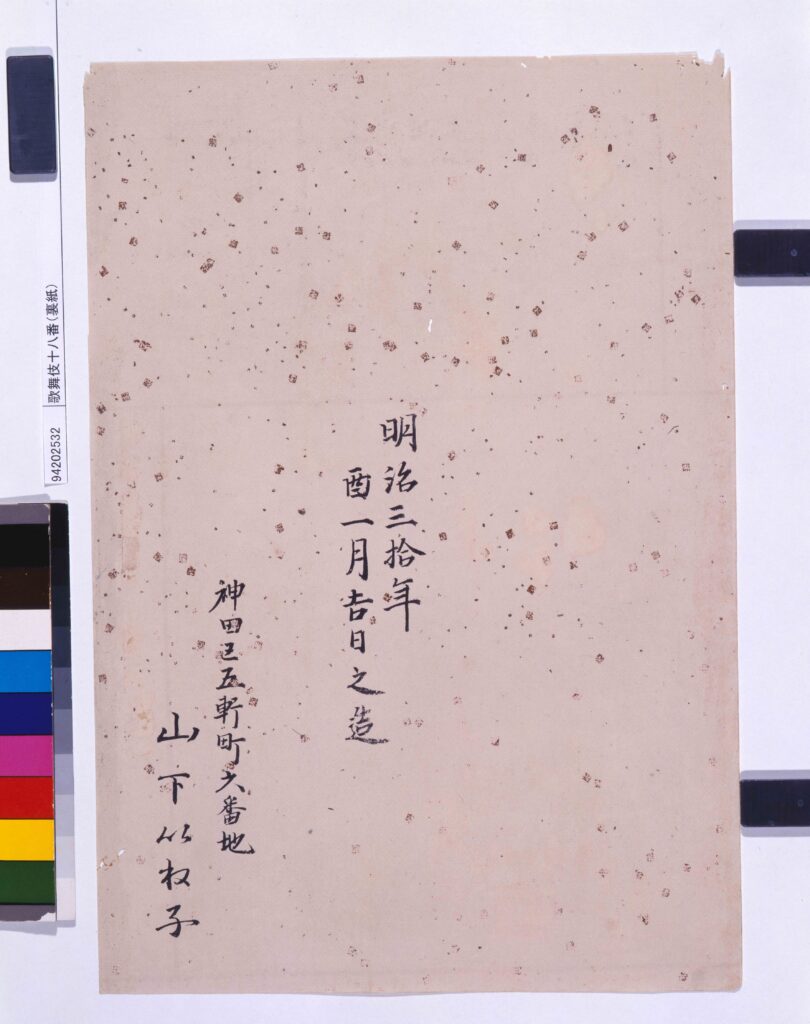 明治三拾年
酉一月吉日之造
神田区五軒町六番地
山下子
94202532 歌舞伎十八番(裏紙)